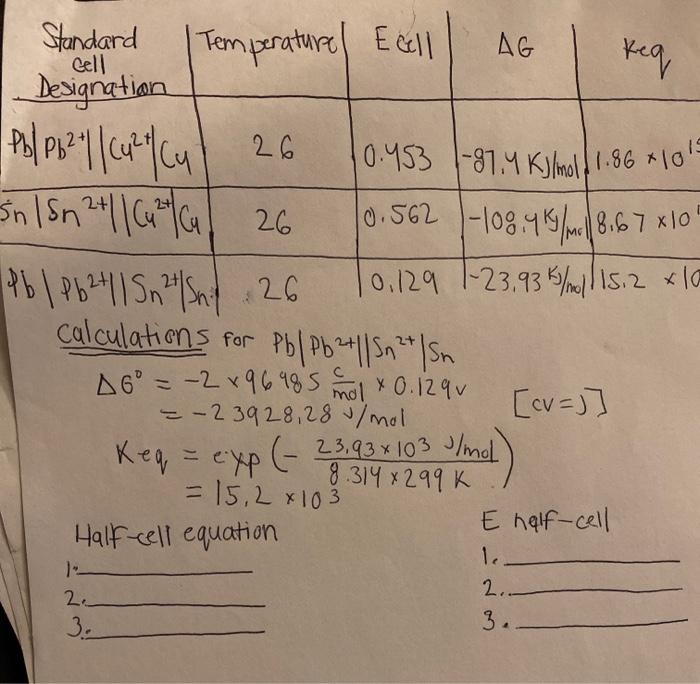 Standard cell Designation | Temperature | E cell | ΔG | Keq
Pb|Pb²⁺||Cu²⁺|Cu | 26 | 0.453 | -87.4 KJ/mol | 1.86 × 10¹⁵
Sn|Sn²⁺||Cu²⁺|Cu | 26 | 0.562 | -108.4 KJ/mol | 8.67 × 10
Pb|Pb²⁺||Sn²⁺|Sn | 26 | 0.129 | -23.93 KJ/mol | 15.2 × 10
Calculations for Pb|Pb²⁺||Sn²⁺|Sn
ΔG° = -2 × 96485 C/mol × 0.129v
= -23928.28 J/mol [CV = J]
Keq = exp (- 23.93 × 103 J/mol / 8.314 × 299 K)
= 15.2 × 103
Half-cell equation
1.
2.
3.
E half-cell
1.
2.
3.